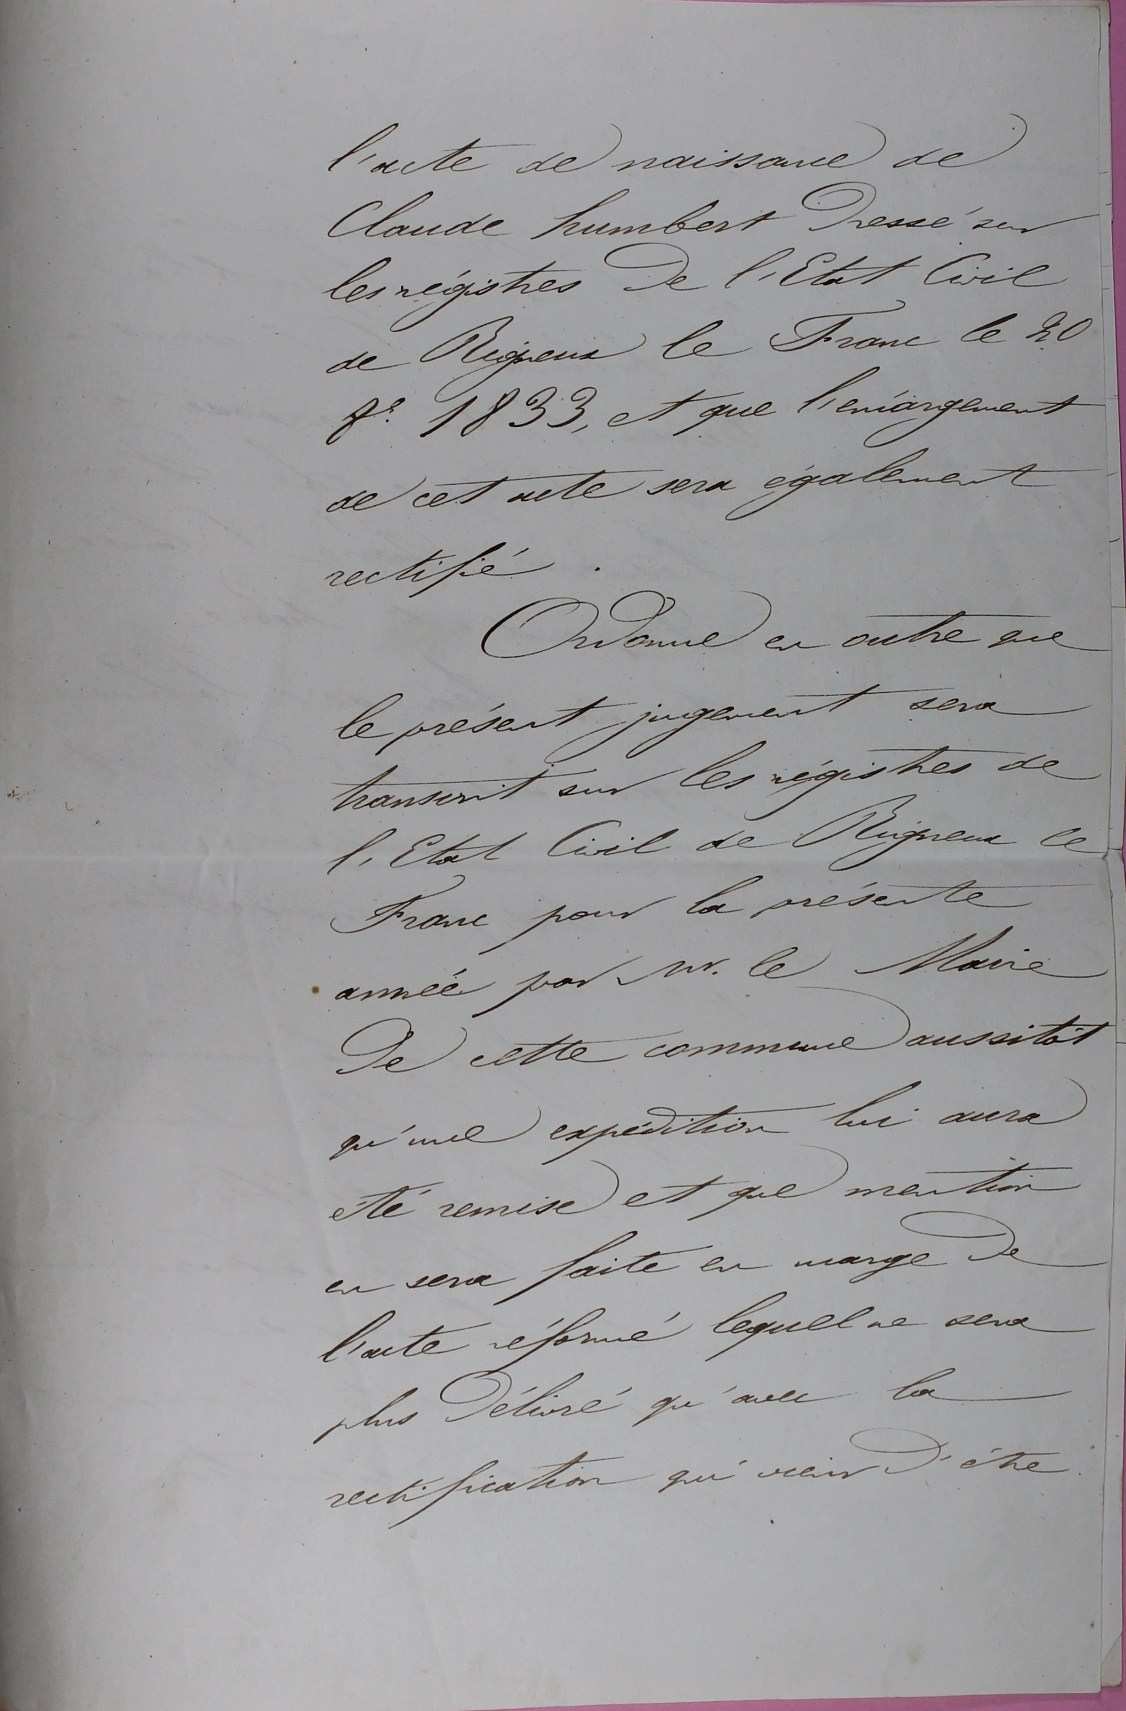 l'acte de naissance de
Claude humbert Dressé sur
les régistres De l'Etat Civil
de Rigneux le Franc le 20
1833, et que l'emargement
de cet acte sera également
rectifié.
Ordonne en outre que
le présent jugement sera
transcrit sur les régistres de
l'Etat Civil de Rigneux le
Franc pour la présente
année par Mr. le Maire
De cette commune aussitôt
qu'une expédition lui aura
été remise et que mention
en sera faite en marge De
l'acte réformé lequel ne sera
plus Délivré qu'avec la
rectification qui vient D'être